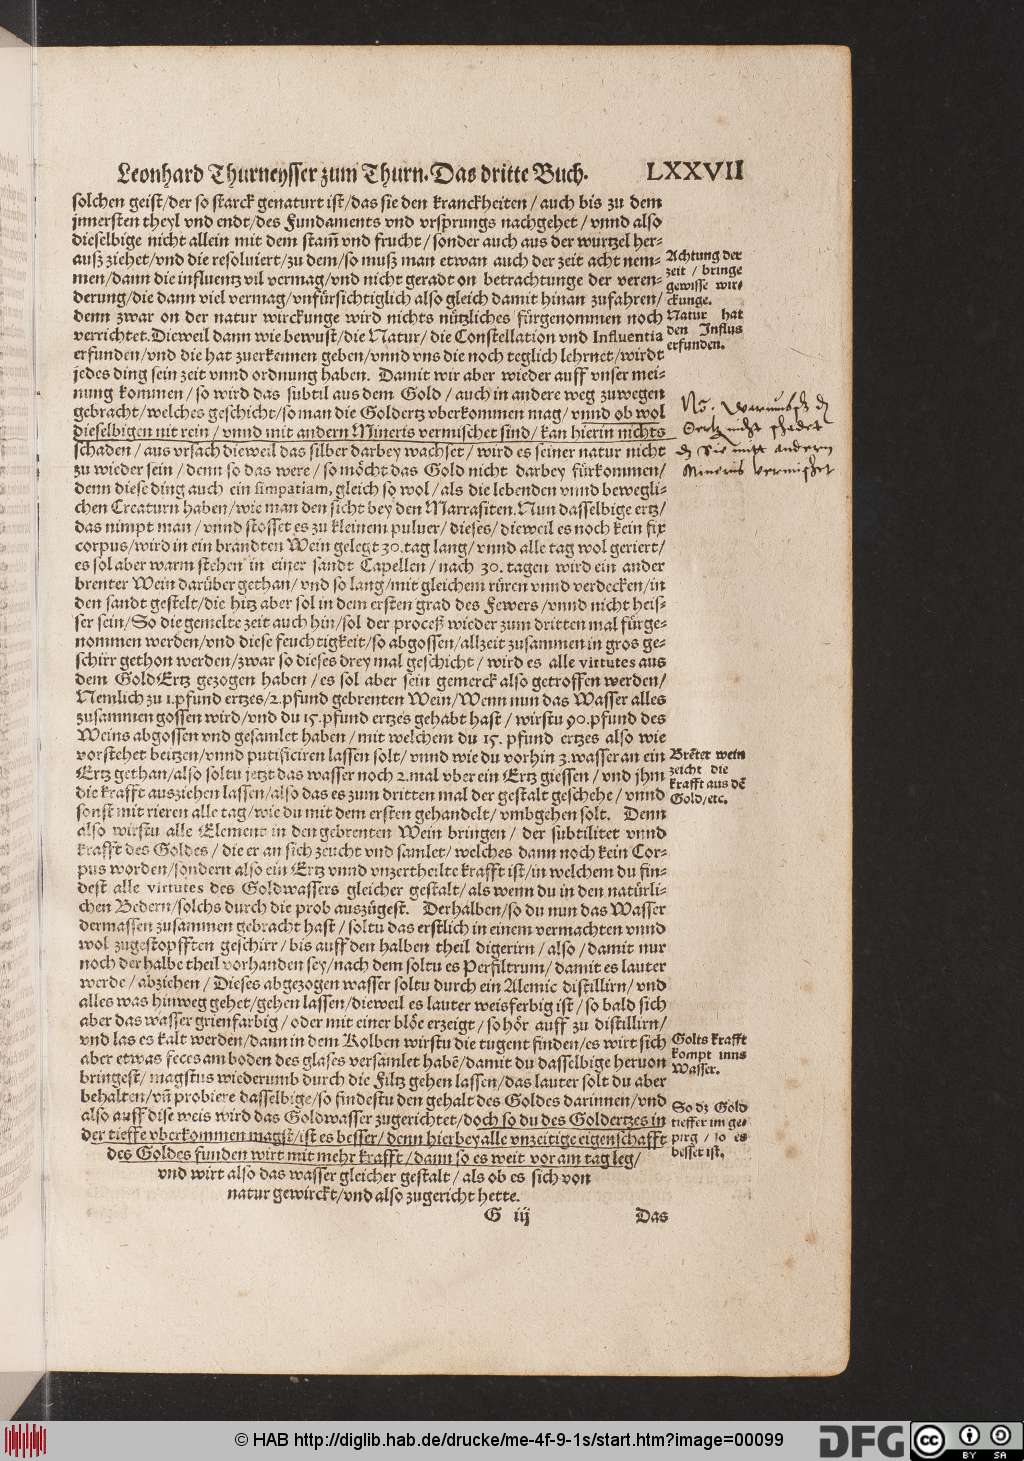 Leonhard Thurneysser zum Thurn. Das dritte Buch. LXXVII
solchen geist/der so starck genaturt ist/das sie den kranckheiten/auch bis zu dem
jnnersten theyl vnd endt/des Fundaments vnd vrsprungs nachgehet/vnnd also
dieselbige nicht allein mit dem stam̃ vnd frucht/sonder auch aus der wurtzel her-
auß ziehet/vnd die resoluiert/zu dem/so muß man etwan auch der zeit acht nem-
men/dann die influentz vil vermag/vnd nicht geradt on betrachtunge der veren-
derung/die dann viel vermag/vnfürsichtiglich also gleich damit hinan zufahren/
denn zwar on der natur wirckunge wird nichts nützliches fürgenommen noch
verrichtet. Dieweil dann wie bewust/die Natur/die Constellation vnd Influentia
erfunden/vnd die hat zuerkennen geben/vnnd vns die noch teglich lehrnet/wirdt
jedes ding sein zeit vnnd ordnung haben. Damit wir aber wieder auff vnser mei-
nung kommen/so wird das subtil aus dem Gold/auch in andere weg zuwegen
gebracht/welches geschicht/so man die Goldertz vberkommen mag/vnnd ob wol
dieselbigen nit rein/vnnd mit andern Mineris vermischet sind/kan hierin nichts
schaden/aus vrsach dieweil das silber darbey wachset/wird es seiner natur nicht
zu wieder sein/denn so das were/so möcht das Gold nicht darbey fürkommen/
denn diese ding auch ein simpatiam, gleich so wol/als die lebenden vnnd bewegli-
chen Creaturn haben/wie man den sicht bey den Marrasiten. Nun dasselbige ertz/
das nimpt man/vnnd stosset es zu kleinem puluer/dieses/dieweil es noch kein fix
corpus/wird in ein brandten Wein gelegt 30. tag lang/vnnd alle tag wol geriert/
es sol aber warm stehen in einer sandt Capellen/nach 30. tagen wird ein ander
brenter Wein darüber gethan/vnd so lang/mit gleichem rüren vnnd verdecken/in
den sandt gestelt/die hitz aber sol in dem ersten grad des Fewers/vnnd nicht heis-
ser sein/So die gemelte zeit auch hin/sol der proceß wieder zum dritten mal fürge-
nommen werden/vnd diese feuchtigkeit/so abgossen/allzeit zusammen in gros ge-
schirr gethon werden/zwar so dieses drey mal geschicht/wird es alle virtutes aus
dem Gold Ertz gezogen haben/es sol aber sein gemerck also getroffen werden/
Nemlich zu 1. pfund ertzes/2. pfund gebrenten Wein/Wenn nun das Wasser alles
zusammen gossen wird/vnd du 15. pfund ertzes gehabt hast/wirstu 90. pfund des
Weins abgossen vnd gesamlet haben/mit welchem du 15. pfund ertzes also wie
vorstehet beitzen/vnnd putificiren lassen solt/vnnd wie du vorhin 3. wasser an ein
Ertz gethan/also soltu jetzt das wasser noch 2. mal vber ein Ertz giessen/vnd jhm
die krafft ausziehen lassen/also das es zum dritten mal der gestalt geschehe/vnnd
sonst mit rieren alle tag/wie du mit dem ersten gehandelt/vmbgehen solt. Denn
also wirstu alle Element in den gebrenten Wein bringen/der subtilitet vnnd
krafft des Goldes/die er an sich zeucht vnd samlet/welches dann noch kein Cor-
pus worden/sondern also ein Ertz vnnd vnzertheilte krafft ist/in welchem du fin-
dest alle virtutes des Goldwassers gleicher gestalt/als wenn du in den natürli-
chen Bedern/solchs durch die prob auszügest. Derhalben/so du nun das Wasser
dermassen zusammen gebracht hast/soltu das erstlich in einem vermachten vnnd
wol zugestopfften geschirr/bis auff den halben theil digerirn/also/damit nur
noch der halbe theil vorhanden sey/nach dem soltu es Perfiltrum/damit es lauter
werde/abziehen/Dieses abgezogen wasser soltu durch ein Alemic distillirn/vnd
alles was hinweg gehet/gehen lassen/dieweil es lauter weisferbig ist/so bald sich
aber das wasser grienfarbig/oder mit einer blöe erzeigt/so hör auff zu distillirn/
vnd las es kalt werden/dann in dem Kolben wirstu die tugent finden/es wirt sich
aber etwas feces am boden des glases versamlet habẽ/damit du dasselbige heruon
bringest/magstus wiederumb durch die Filtz gehen lassen/das lauter solt du aber
behalten/vñ probiere dasselbige/so findestu den gehalt des Goldes darinnen/vnd
also auff dise weis wird das Goldwasser zugerichtet/doch so du des Goldertzes in
der tieffe vberkommen magst/ist es besser/denn hierbey alle vnzeitige eigenschafft
des Goldes funden wirt mit mehr krafft/dann so es weit vor am tag leg/
vnd wirt also das wasser gleicher gestalt/als ob es sich von
natur gewirckt/vnd also zugericht hette.
G iij Das
Achtung der
zeit / bringe
gewisse wir-
ckunge.
Natur hat
den Influs
erfunden.
No.
Ertz nicht schadet
dz Sie mitt andern
Mineris vermischet
Brẽter wein
zeicht die
krafft aus dẽ
Gold/etc.
Golts krafft
kompt inns
Wasser.
So dz Gold
tieffer im ge-
pirg / so es
besser ist.
© HAB http://diglib.hab.de/drucke/me-4f-9-1s/start.htm?image=00099
DFG
cc
BY SA